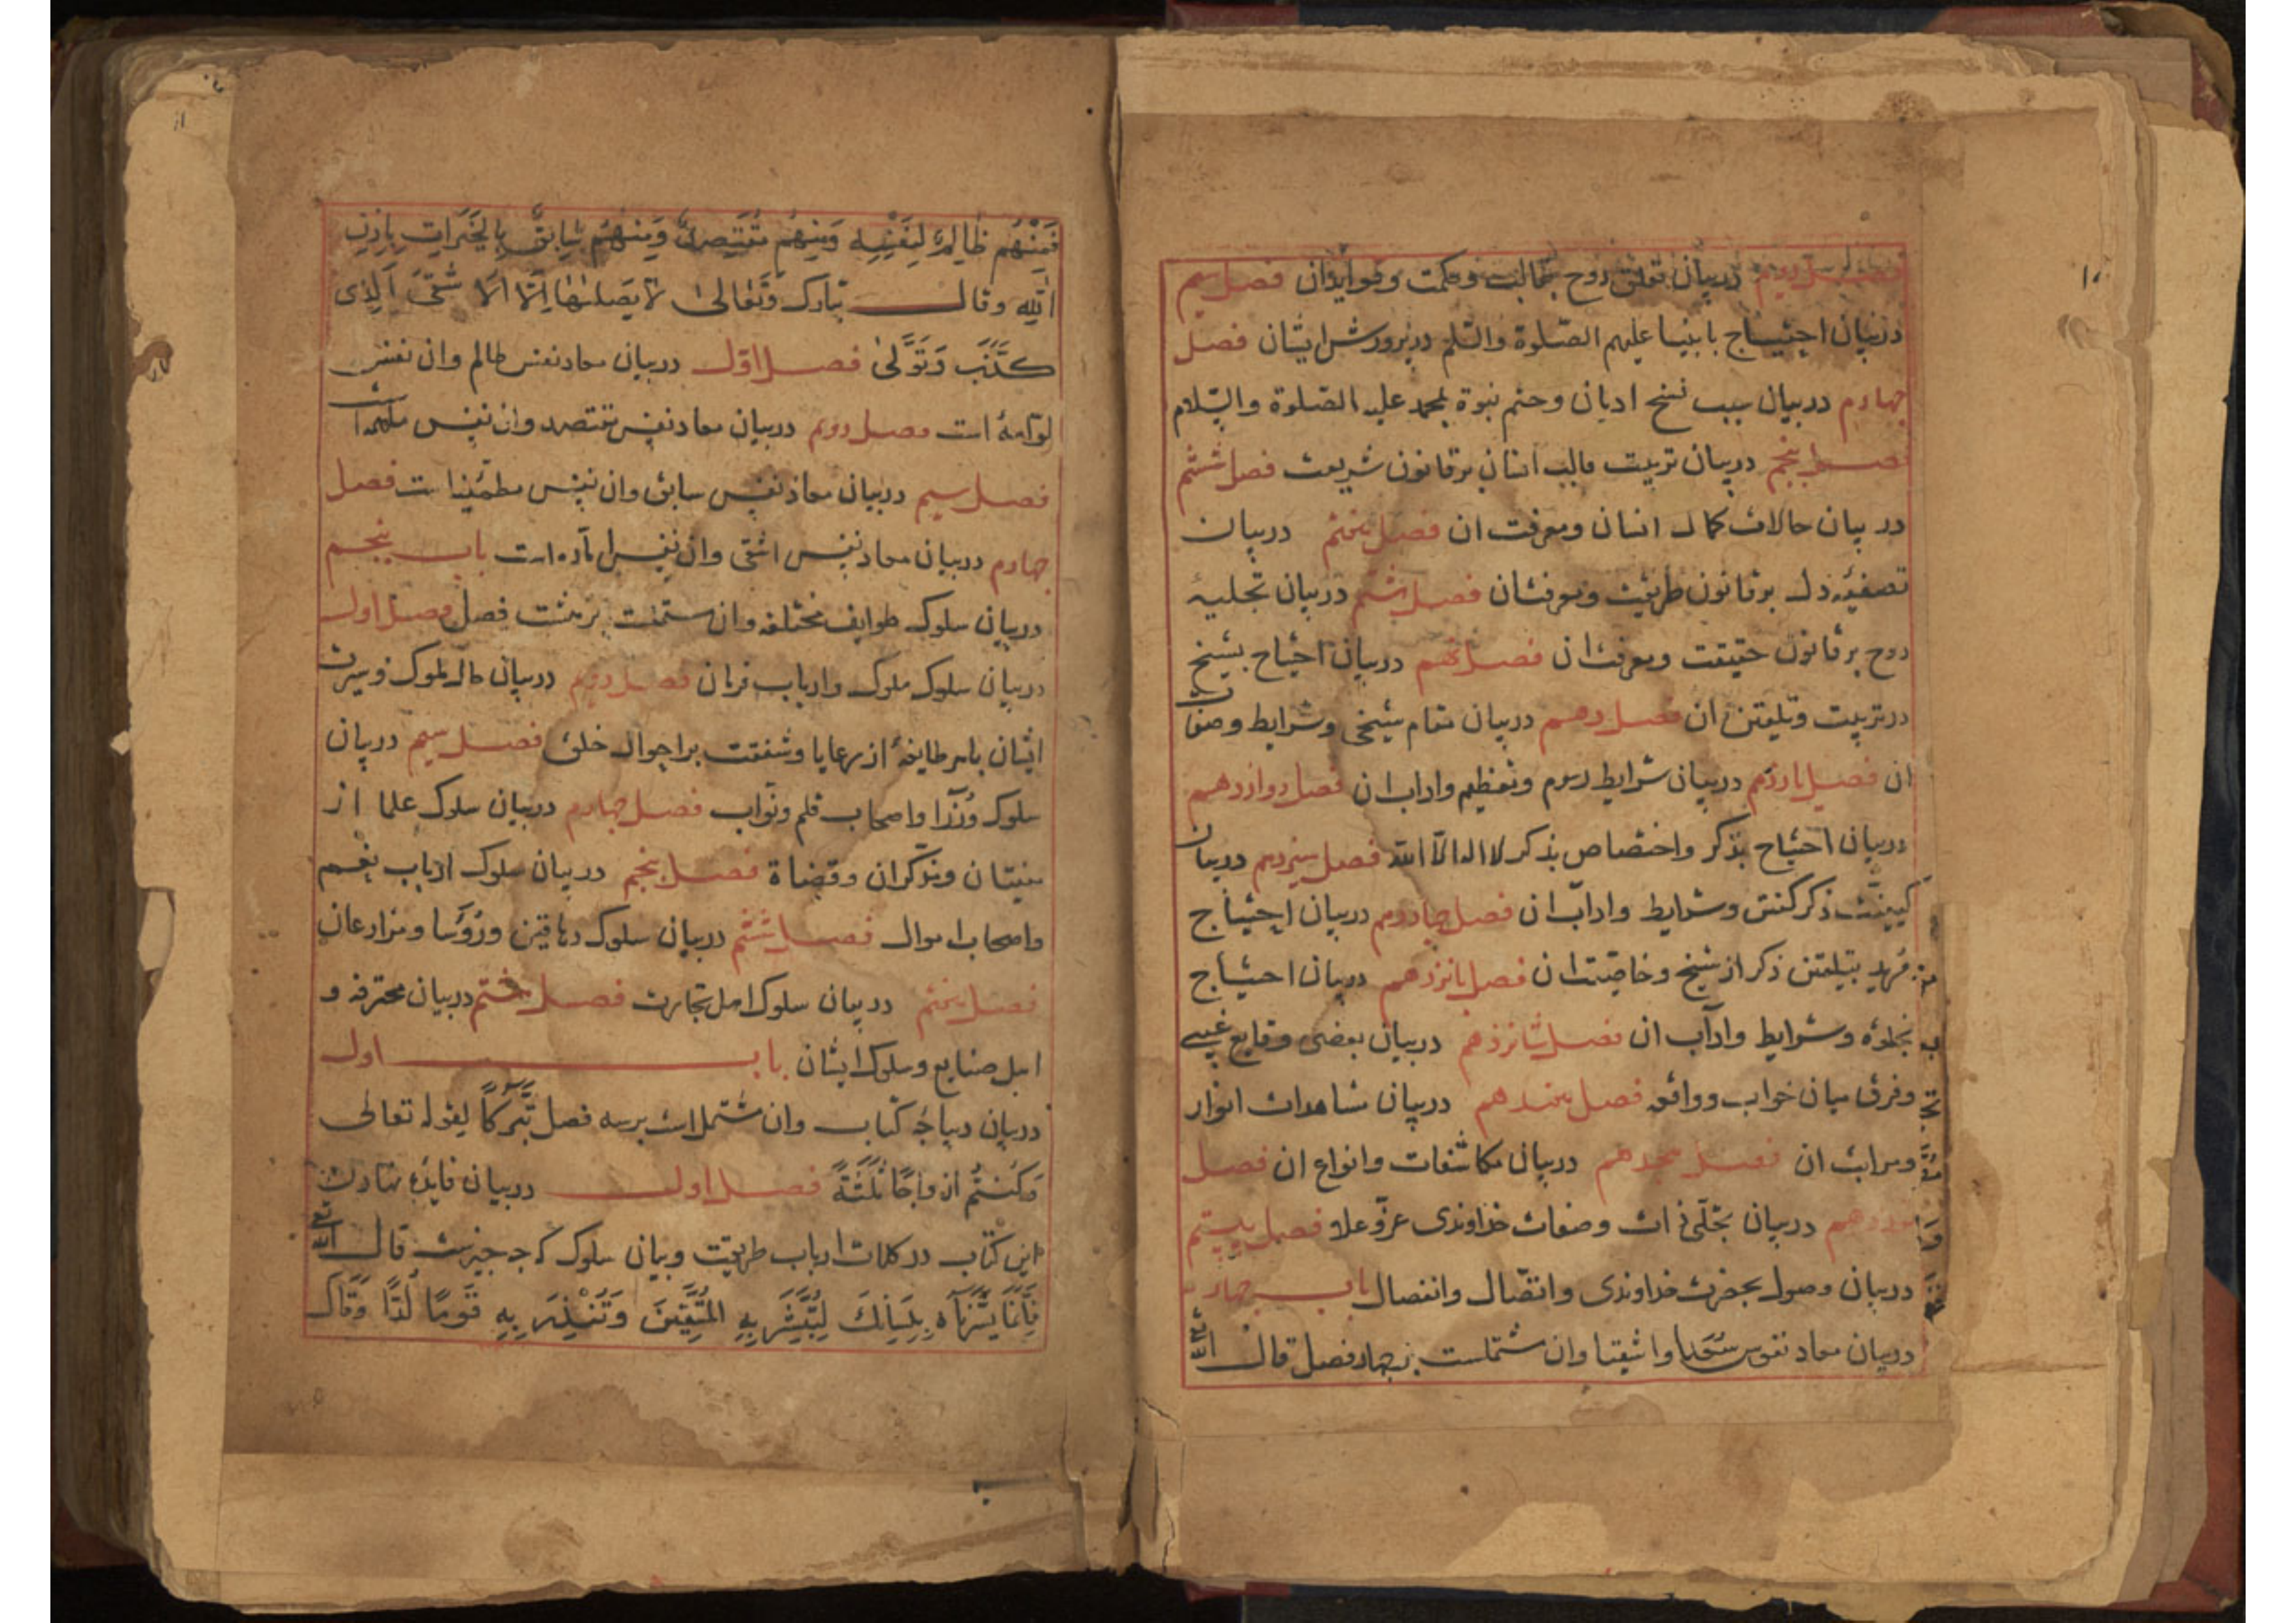 ۱۰
فصل دویم در بیان تعلق روح بقالب و حکمت و فواید ان فصل سیم
در بیان احتیاج بانبیا علیهم الصلوة والسلم در پرورش ایشان فصل
چهارم در بیان سبب نسخ ادیان و ختم نبوة بمحمد علیه الصلوة والسّلام
فصل پنجم در بیان تربیت قالب انسان بر قانون شریعت فصل ششم
در بیان حالات کمال انسان و معرفت ان فصل هفتم در بیان
تصفیۀ دل بر قانون طریقت و معرفت ان فصل هشتم در بیان تجلیۀ
روح بر قانون حقیقت و معرفت ان فصل نهم در بیان احتیاج بشیخ
در تربیت و تلیقن ان فصل دهم در بیان مقام شیخی و شرایط و صفات
ان فصل یازدهم در بیان شرایط و تعظیم و اداب ان فصل دوازدهم
در بیان احتیاج بذکر و اختصاص بذکر لا اله الّا الله فصل سیزدهم در بیان
کیفیّت ذکر کفتن و شرایط و اداب ان فصل چهاردهم در بیان احتیاج
مرید بتلیقن ذکر از شیخ و خاصیّت ان فصل پانزدهم در بیان احتیاج
بخلوة و شرایط و اداب ان فصل شانزدهم در بیان بعضی وقایع غیبی
و فرق میان خواب و واقعه فصل هفدهم در بیان مشاهدات انوار
و مراتب ان فصل هجدهم در بیان مکاشفات و انواع ان فصل
نوزدهم در بیان تجلّی ذات و صفات خداوندی عزّ و علا فصل بیستم
در بیان وصول بحضرت خداوندی و اتصّال و انفصال باب چهارم
در بیان معاد نفوس سُعَدا و اشقیا وان مشتملست بر چهار فصل قال الله تع
۱۱
فَمِنْهُم ظَالِمٌ لِنَفْسِه وَمِنهُم مُقْتَصِدٌ وَمِنهُم سَابِقٌ بِالْخَیَراتِ بِاِذنِ
الله وقال تبارک وَتَعَالیٰ لَا یَصلٰیهَا اِلَّا الَا شقَی اَلَّذِی
کَذَّبَ وَتَوَلَّیٰ فصل اوّل در بیان معاد نفس ظالم وان نفس
لوّامۀ است فصل دویم در بیان معاد نفس مقتصد وان نفس ملهمه است
فصل سیم در بیان معاد نفس سابق وان نفس مطمئنّه است فصل
چهارم در بیان معاد نفس اشقی وان نفس امّاره است باب پنجم
در بیان سلوک طوایف مختلفه وان مشتملست بر هشت فصل فصل اول
در بیان سلوک ملوک و ارباب فرمان فصل دویم در بیان حال ملوک و سیرت
ایشان با هر طایفۀ از رعایا و شفقت بر احوال خلق فصل سیم در بیان
سلوک وُزَرا و اصحاب قلم و نوّاب فصل چهارم در بیان سلوک علما از
مفتیان و مذکّران و قضاة فصل پنجم در بیان سلوک ارباب نِعَم
و اصحاب اموال فصل ششم در بیان سلوک دهاقین و رُؤَسا و مزارعان
فصل هفتم در بیان سلوک اهل تجارت فصل هشتم در بیان محترفه و
اهل صنایع و سلوک ایشان باب اول
در بیان دیباجۀ کتاب وان مشتمل است بر سه فصل تَبَّرکاً لقوله تعالی
وَکُنتُم ازواجًا ثَلٰثَةً فصل اول در بیان فایدۀ نهادن
این کتاب در کلمات ارباب طریقت و بیان سلوک که جه جیزست قال الله تع
فَاِنَّمَا یَسَّرْنَاهُ بِلِسَانِکَ لِتُبَشِّرَ بِهِ الْمُتَّقِینَ وَتُنْذِرَ بِهِ قَومًا لُدًّا وَقَال